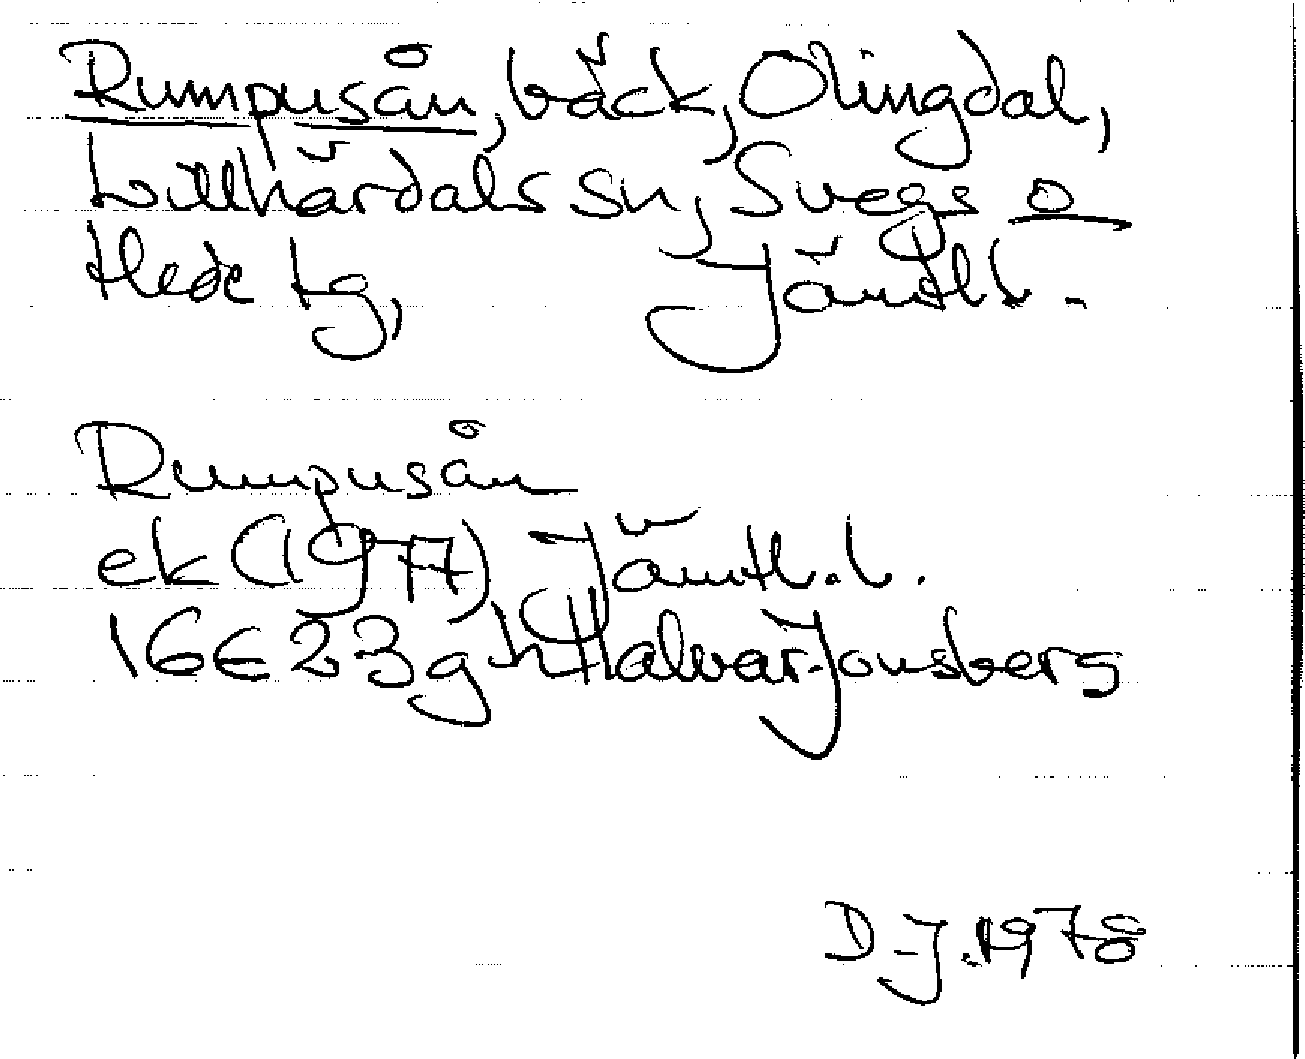 Rumpusån, bäck, Olingdal,
Lillhärdals sn, Svegs o
Hede tg, Jämtl l.
Rumpusån
ek (1977) Jämtl. l.
16E 23 g-h HalvarJonsberg
D-J. 1978